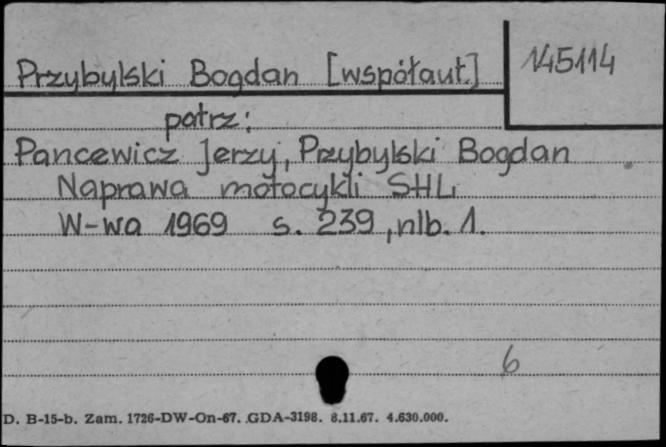 Przybylski Bogdan [współaut.] 145114
patrz:
Pancewicz Jerzy, Przybylski Bogdan
Naprawa motocykli SHL
W-wa 1969 s. 239, nlb. 1.
6
D. B-15-b. Zam. 1726-DW-On-67. GDA-3198. 8.11.67. 4.630.000.